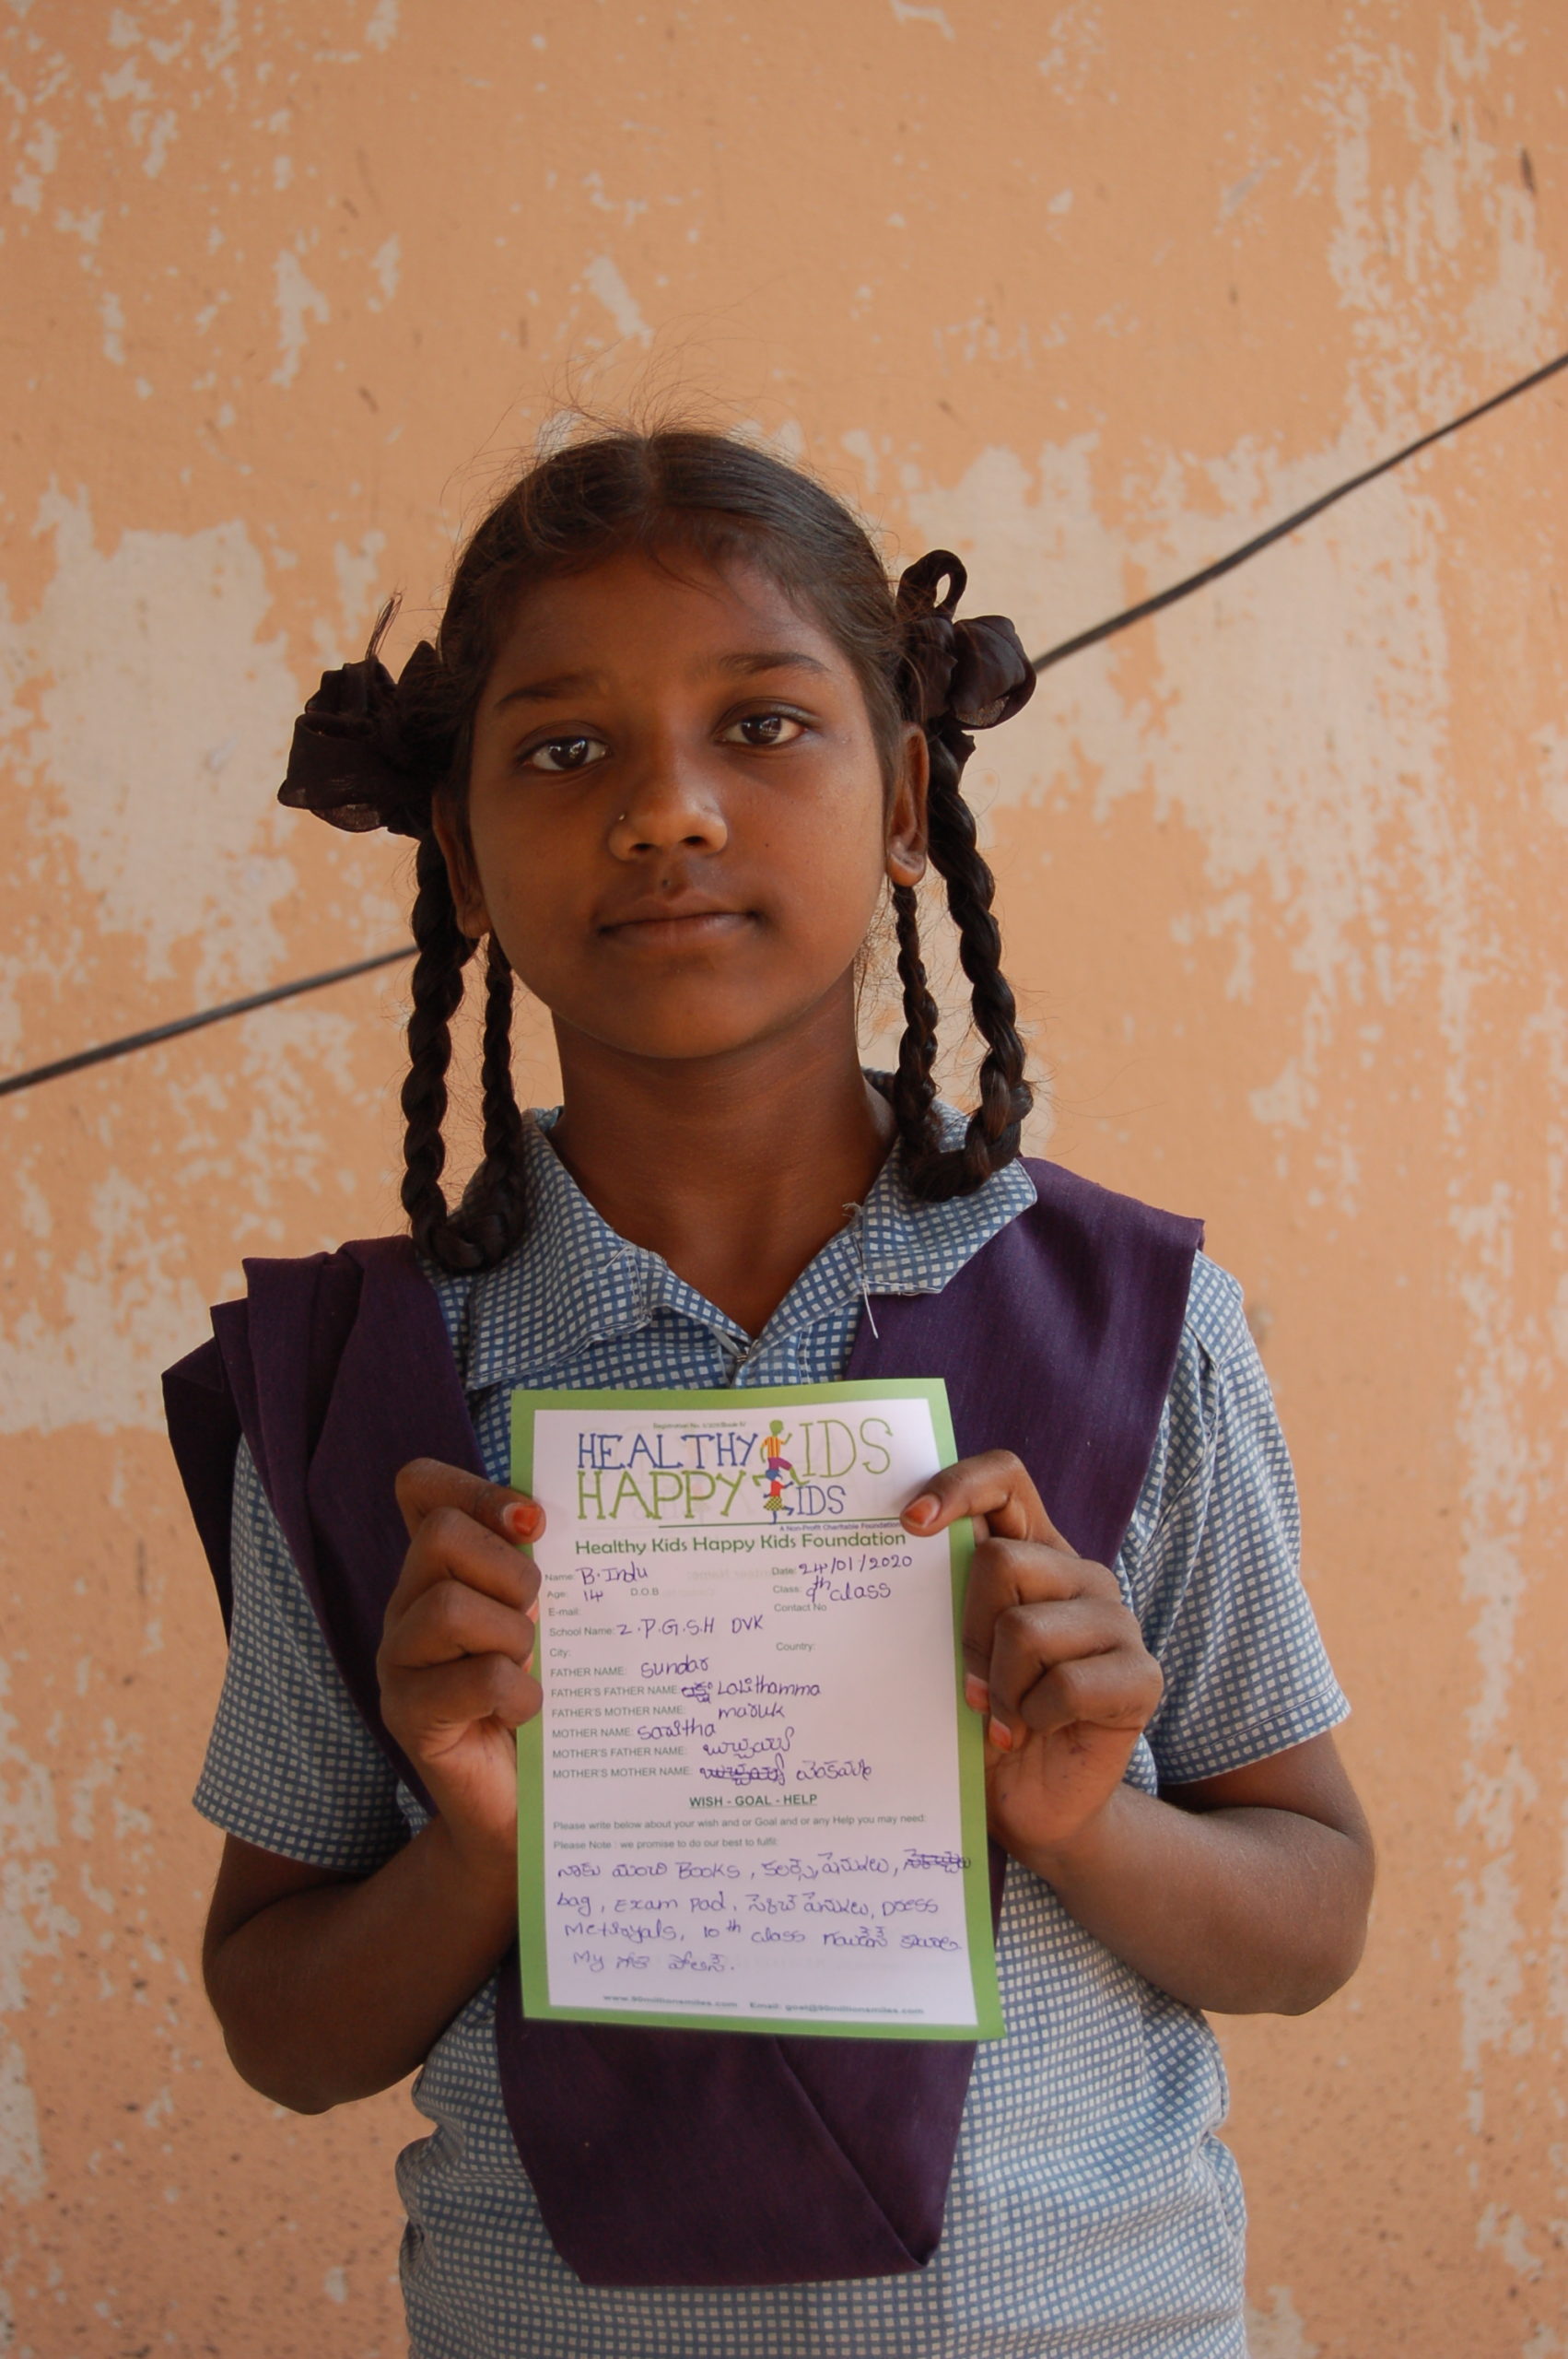 HEALTHY KIDS
HAPPY KIDS
A Non-Profit Charitable Foundation
Healthy Kids Happy Kids Foundation
Name: B. Indu Date: 24/01/2020
Age: 14 D.O.B Class: 9th class
E-mail: Contact No
School Name: Z.P.G.S.H DVK
City: Country:
FATHER NAME: Sundar
FATHER'S FATHER NAME: Lalithamma
FATHER'S MOTHER NAME: maruk
MOTHER NAME: Saritha
MOTHER'S FATHER NAME: బుచ్చయ్య
MOTHER'S MOTHER NAME:
WISH - GOAL - HELP
Please write below about your wish and or Goal and or any Help you may need:
Please Note : we promise to do our best to fulfil:
నాకు మంచి Books, కలర్స్, పెనుకలు,
bag, Exam pad, పెనుకలు, Dress
10th class కావాలి
My గోల్ పోలీస్.
www.90millionsmiles.com Email: goal@90millionsmiles.com